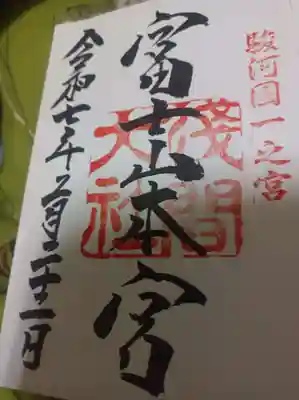 駿河國一之宮
富士山本宮
淺間大社
令和七年月二十一日